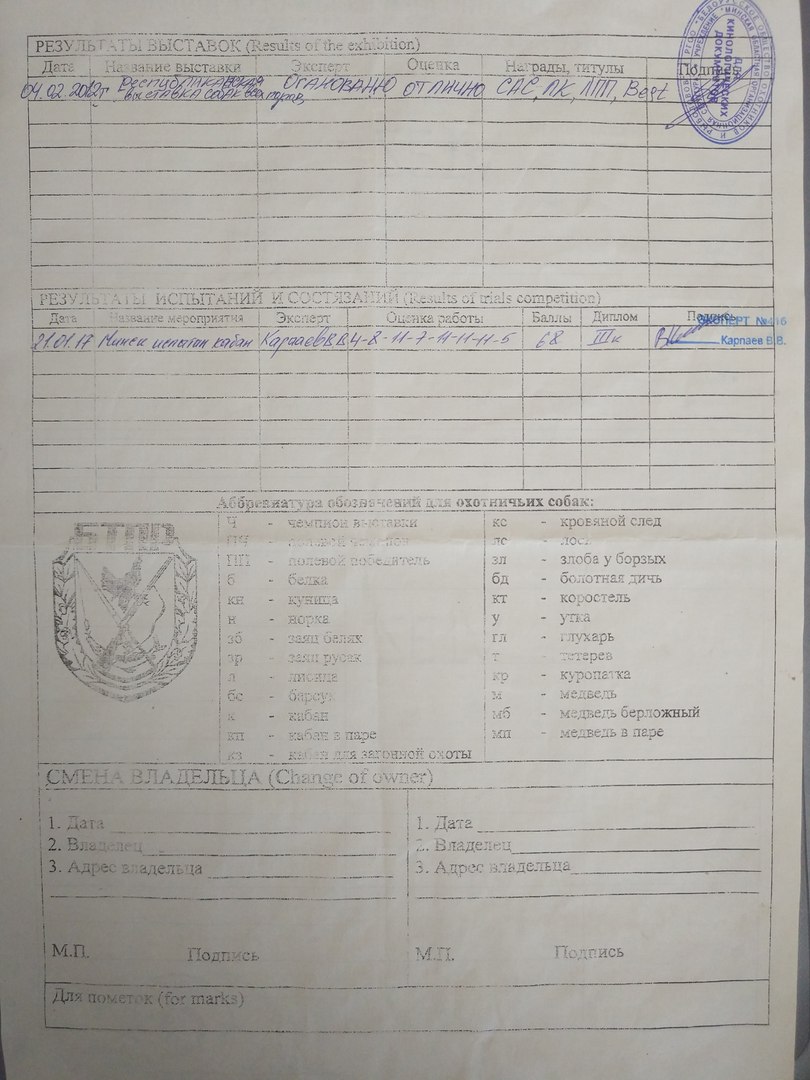 РЕЗУЛЬТАТЫ ВЫСТАВОК (Results of the exhibition)
Дата Название выставки Эксперт Оценка Награды, титулы Подпись
04.02.2012г Республиканская выставка собак всех пород ОТЛИЧНО CAC, ЛК, ЛПП, Best
ДЛЯ КИНОЛОГИЧЕСКИХ ДОКУМЕНТОВ
РЕЗУЛЬТАТЫ ИСПЫТАНИЙ И СОСТЯЗАНИЙ (Results of trials competition)
Дата Название мероприятия Эксперт Оценка работы Баллы Диплом Подпись
21.01.17 Минск испытан кабан Карпаев В.В. 4-8-11-7-11-11-11-5 68 IIIк
ЭКСПЕРТ №416
Карпаев В.В.
Аббревиатура обозначений для охотничьих собак:
Ч - чемпион выставки
ПЧ - полевой чемпион
ПП - полевой победитель
б - белка
кн - куница
н - норка
зб - заяц беляк
зр - заяц русак
л - лисица
бс - барсук
к - кабан
кп - кабан в паре
кз - кабан для загонной охоты
кс - кровяной след
лс - лось
зл - злоба у борзых
бд - болотная дичь
кт - коростель
у - утка
гл - глухарь
т - тетерев
кр - куропатка
м - медведь
мб - медведь берложный
мп - медведь в паре
СМЕНА ВЛАДЕЛЬЦА (Change of owner)
1. Дата
2. Владелец
3. Адрес владельца
М.П. Подпись
1. Дата
2. Владелец
3. Адрес владельца
М.П. Подпись
Для пометок (for marks)